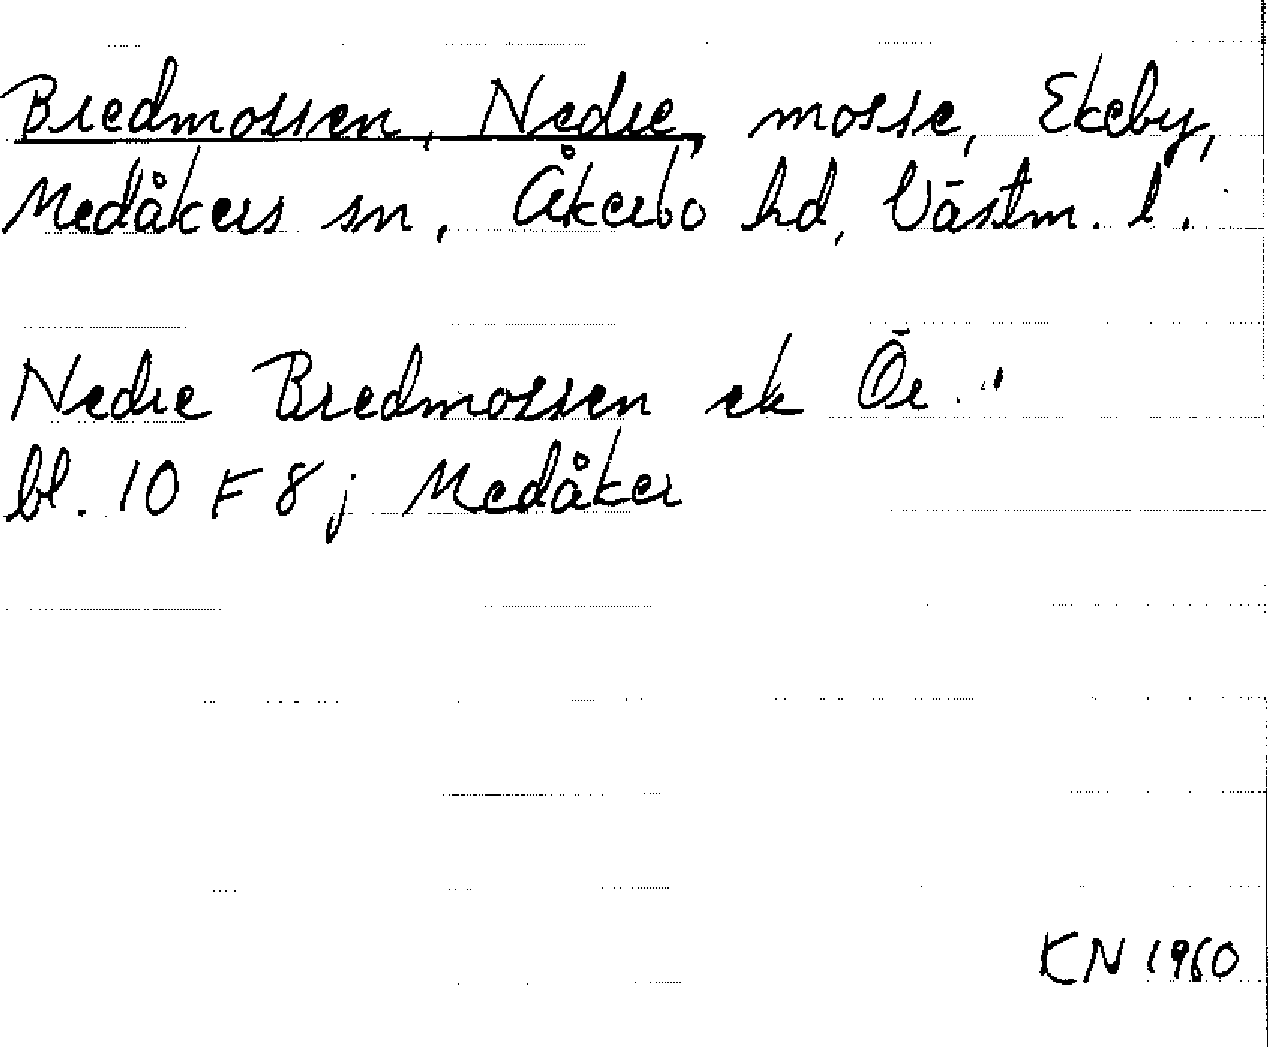 Bredmossen, Nedre, mosse, Ekeby,
Medåkers sn, Åkerbo hd, Västm. l.
Nedre Bredmossen ek Ör.
bl. 10 F 8 j Medåker
KN 1960